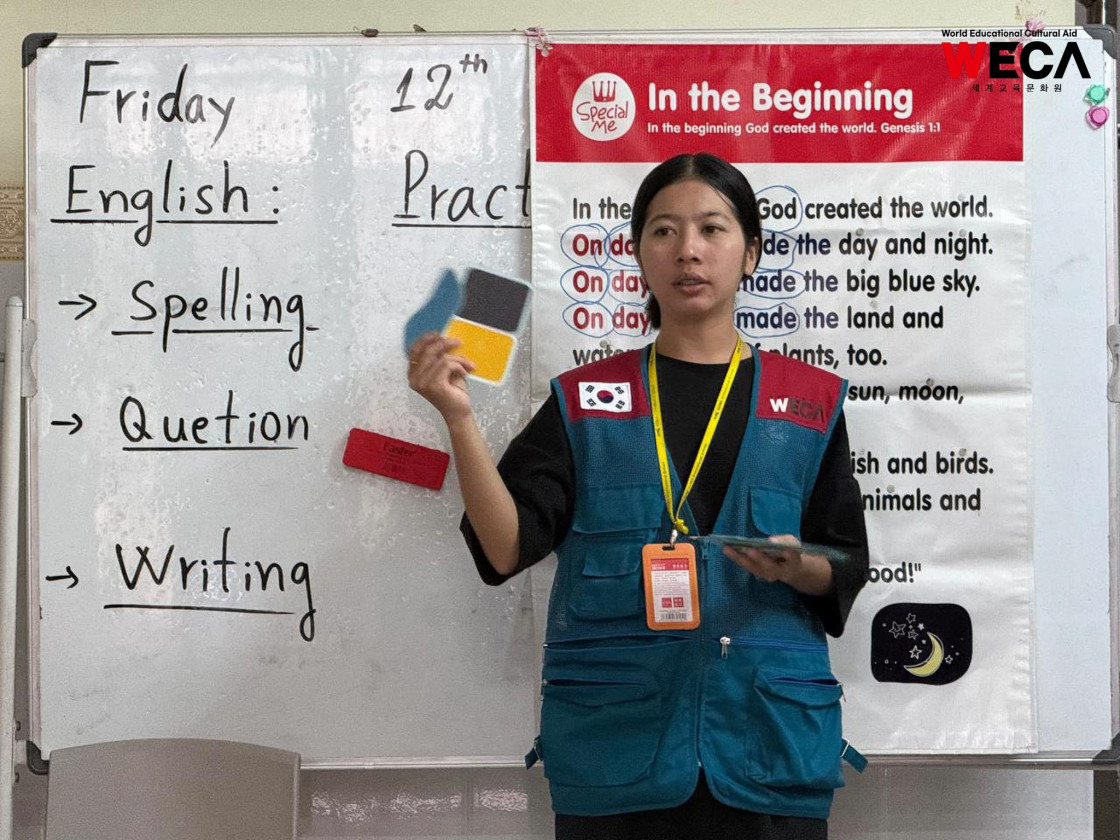 World Educational Cultural Aid
WECA
세계교육문화원
Friday 12th
English: Pract
→ Spelling
→ Quetion
→ Writing
Special Me
In the Beginning
In the beginning God created the world. Genesis 1:1
In the God created the world.
On de the day and night.
On day made the big blue sky.
On day made the land and
plants, too.
sun, moon,
ish and birds.
nimals and
ood!"
WECA